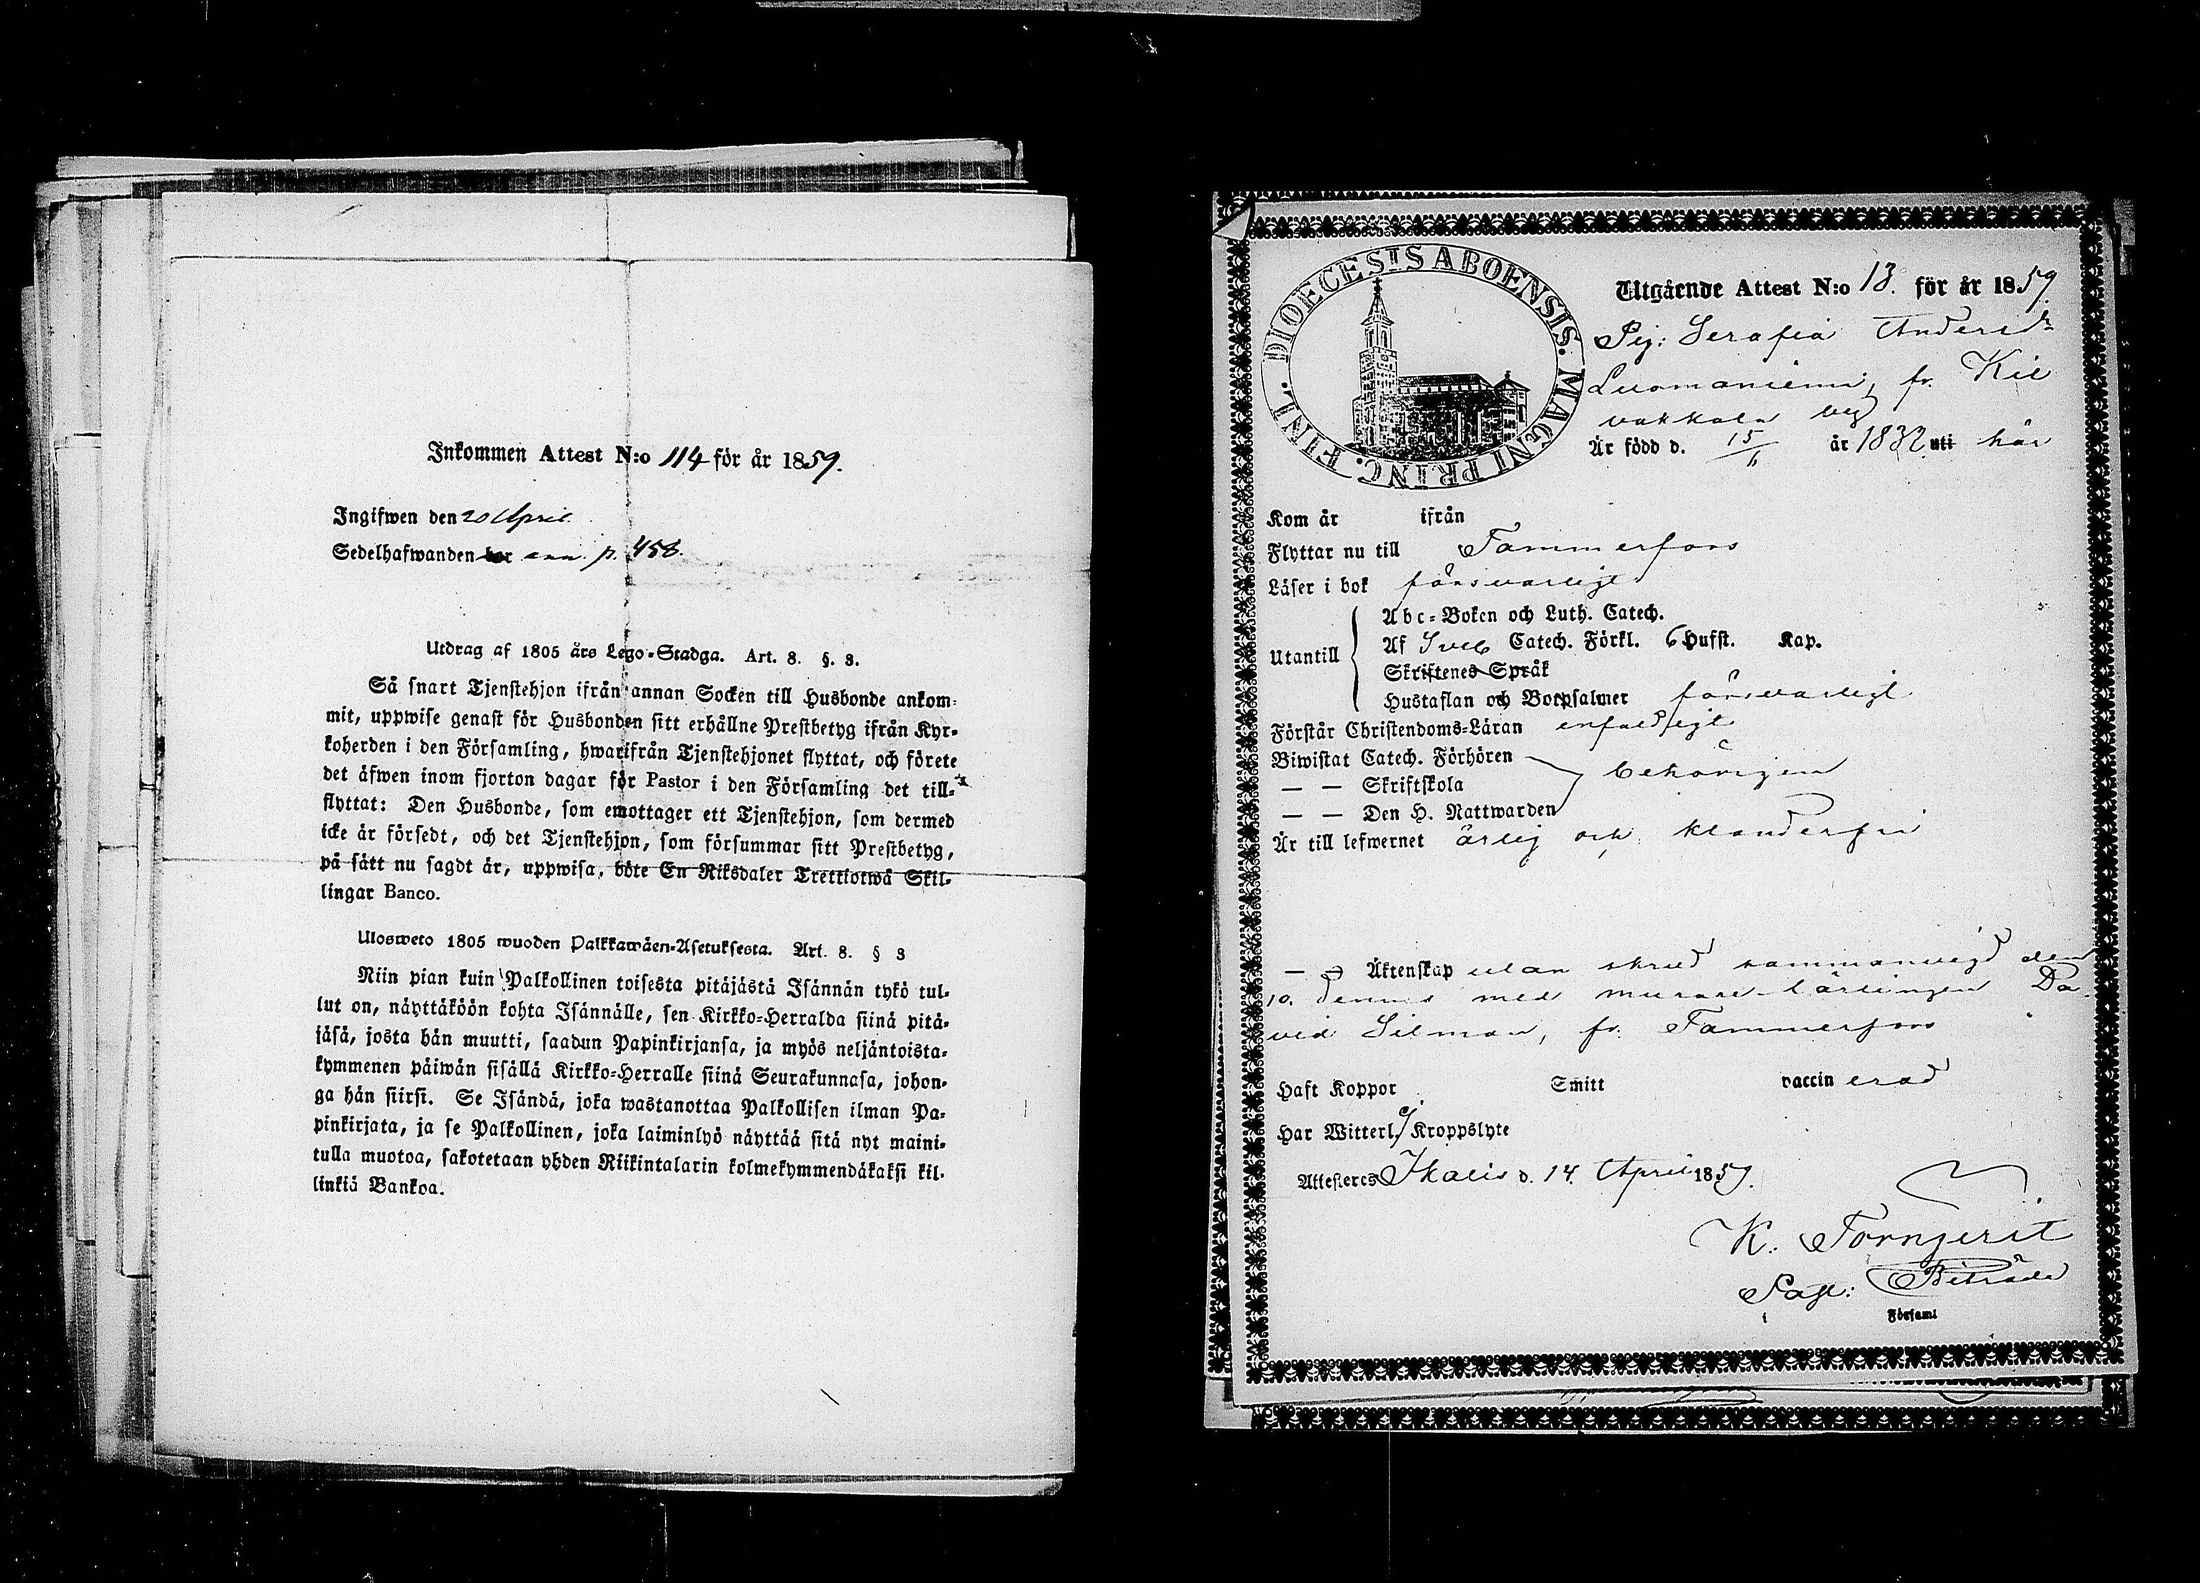 Inkommen Attest N:o 114 för år 1859.
Ingifwen den 20 April
Sedelhafwanden har ann. p. 458.
Utdrag af 1805 års Lego-Stadga. Art. 8. §. 3.
Så snart Tjenstehjon ifrån annan Socken till Husbonde ankom-
mit, uppwise genast för Husbonden sitt erhållne Prestbetyg ifrån Kyr-
koherden i den Församling, hwarifrån Tjenstehjonet flyttat, och förete
det äfwen inom fjorton dagar för Pastor i den Församling det till-
flyttat: Den Husbonde, som emottager ett Tjenstehjon, som dermed
icke är försedt, och det Tjenstehjon, som försummar sitt Prestbetyg,
på sätt nu sagdt är, uppwisa, böte En Riksdaler Trettiotwå Skil-
lingar Banco.
Ulosweto 1805 wuoden Palkkawäen-Asetuksesta. Art. 8. § 3
Niin pian kuin Palkollinen toisesta pitäjästä Isännän tykö tul-
lut on, näyttäköön kohta Isännälle, sen Kirkko-Herralda siinä pitä-
jäsä, josta hän muutti, saadun Papinkirjansa, ja myös neljäntoista-
kymmenen päiwän sisällä Kirkko-Herralle siinä Seurakunnasa, johon-
ga hän siirsi. Se Isändä, joka wastanottaa Palkollisen ilman Pa-
pinkirjata, ja se Palkollinen, joka laiminlyö näyttää sitä nyt maini-
tulla muotoa, sakotetaan yhden Riikintalarin kolmekymmendäkaksi kil-
linkiä Bankoa.
DIOECESIS ABOENSIS. MAGNI PRINC. FINL.
Utgående Attest N:o 13. för år 1859.
Pig: Serafia Andersdr
Luomaniemi, fr. Kil
vakkala by
Är född d. 15/11 år 1832 uti här
Kom år ifrån
Flyttar nu till Tammerfors
Läser i bok försvarligt
Abc-Boken och Luth. Catech.
Utantill Af Sveb Catech. Förkl. 6 Hufst. Kap.
Skriftenes Språk
Hustaflan och Botpsalmer försvarligt
Förstår Christendoms-Läran enfaldigt
Biwistat Catech. Förhören
— — Skriftskola behörigen
— — Den H. Nattwarden
Är till lefwernet ärlig och klanderfri
— — Äktenskap utan skrud sammanvigd den
10. dennes med murare-lärlingen Da-
vid Silman, fr. Tammerfors
Haft Koppor Smitt vaccinerad
Har Witterl. ej Kroppslyte
Attesteres Ikalis d. 14. April 1859.
K. Torngerit
Past: Biträde
i Församl